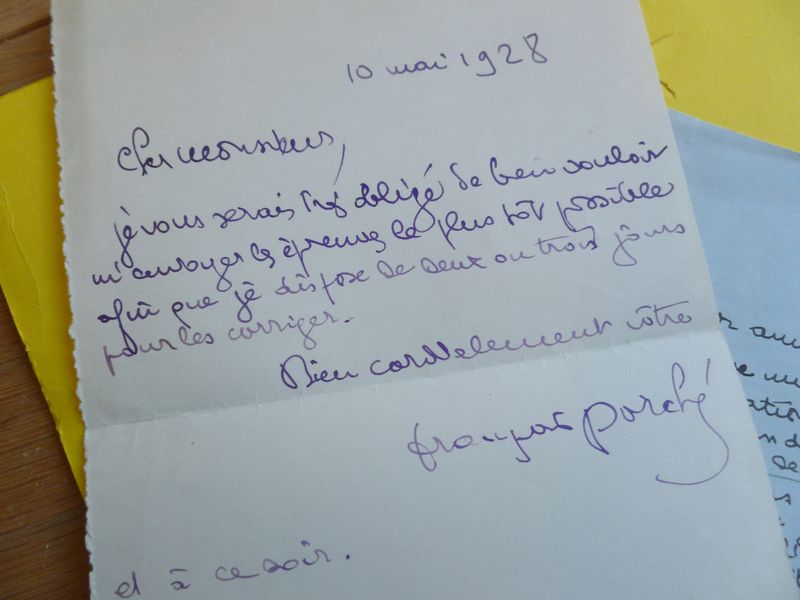 10 mai 1928
Cher monsieur,
je vous serais très obligé de bien vouloir
m'envoyer les épreuves le plus tôt possible
afin que je dispose de deux ou trois jours
pour les corriger.
Bien cordialement vôtre
françois porché
et à ce soir.